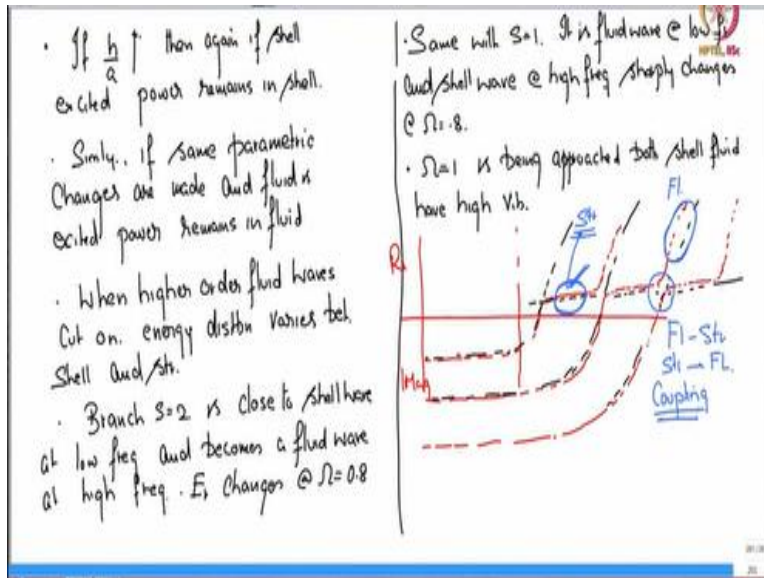 · If h/a ↑ then again if shell
excited power remains in shell.
· Simly., if same parametric
Changes are made and fluid is
excited power remains in fluid
· When higher order fluid waves
Cut on. energy distbn varies bet.
Shell and str.
· Branch S=2 is close to shell wave
at low freq and becomes a fluid wave
at high freq. Er changes @ Ω=0.8
· Same with S=1. It is fluid wave @ low fr
and shell wave @ high freq sharply changes
@ Ω=.8.
· Ω=1 is being approached both shell fluid
have high vib.
NPTEL, IISc
Str
Fl.
Imag
Fl-Str
Str-Fl.
Coupling